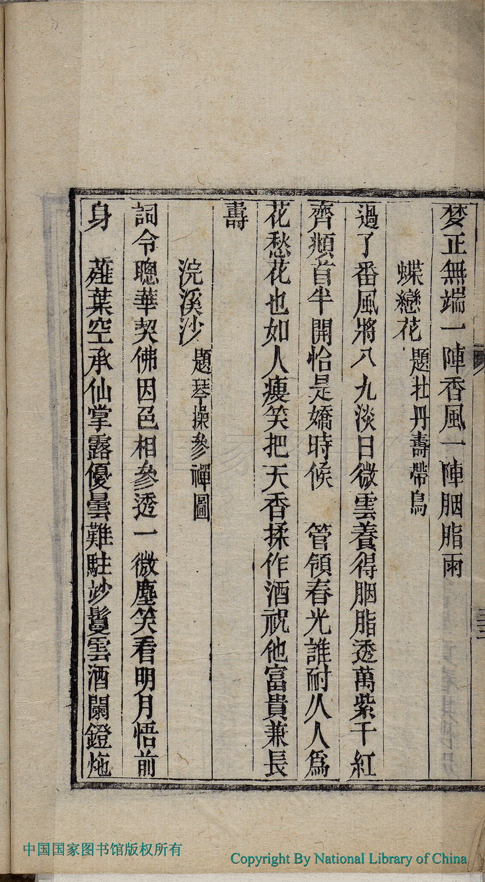 梦正無端一陣香風一陣胭脂雨
蝶戀花 題牡丹壽帶鳥
過了番風將八九淡日微雲養得胭脂透萬紫千紅
齊頫首半開恰是嬌時候 管領春光誰耐久人為
花愁花也如人瘦笑把天香揉作酒祝他富貴兼長
壽
浣溪沙 題琴操參禪圖
詞令聰華契佛因色相參透一微塵笑看明月悟前
身 蕹葉空承仙掌露優曇難駐玅鬘雲酒闌鐙灺
中国国家图书馆版权所有
Copyright By National Library of China